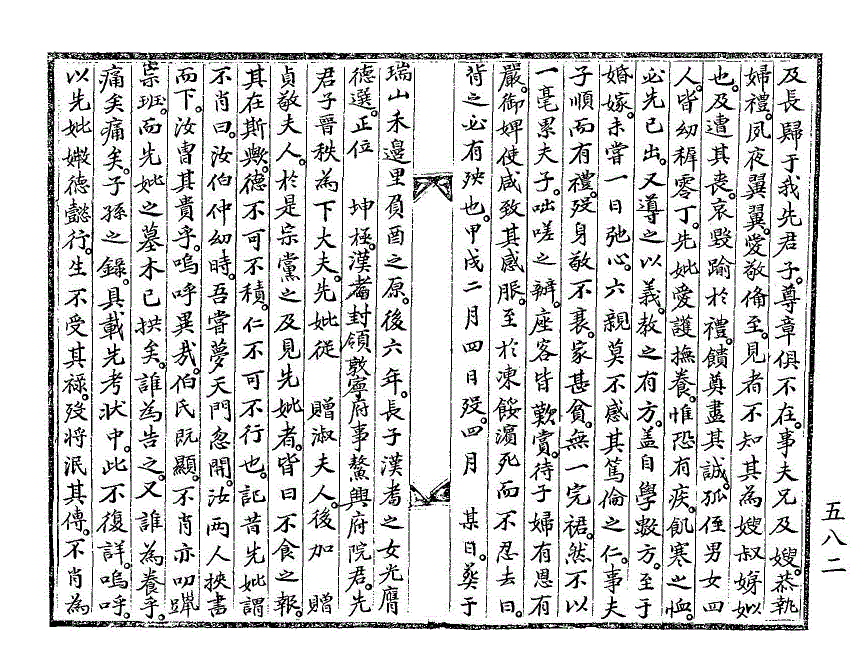 及長歸于我先君子。尊章俱不在。事夫兄及嫂。恭執
婦禮。夙夜翼翼。愛敬備至。見者不知其為嫂叔娣姒
也。及遭其喪。哀毀踰於禮。饋奠盡其誠。孤侄男女四
人。皆幼稺零丁。先妣愛護撫養。惟恐有疾。飢寒之恤。
必先已出。又導之以義。敎之有方。盖自學數方。至于
婚嫁。未嘗一日弛心。六親莫不感其篤倫之仁。事夫
子順而有禮。歿身敬不衰。家甚貧。無一完裙。然不以
一毫累夫子。咄嗟之辦。座客皆歎賞。待子婦有恩有
嚴。御婢使咸致其感服。至於凍餒濱死而不忍去曰。
背之必有殃也。甲戌二月四日歿。四月 某日。葬于
瑞山禾邊里負酉之原。後六年。長子漢耆之女光膺
德選。正位 坤極。漢耆封領敦寧府事鰲興府院君。先
君子晉秩為下大夫。先妣從 贈淑夫人。後加 贈
貞敬夫人。於是宗黨之及見先妣者。皆曰不食之報。
其在斯歟。德不可不積。仁不可不行也。記昔先妣謂
不肖曰。汝伯仲幼時。吾嘗夢天門忽開。汝兩人挾書
而下。汝曺其貴乎。嗚呼異哉。伯氏旣顯。不肖亦叨躋
崇班。而先妣之墓木已拱矣。誰為告之。又誰為養乎。
痛矣痛矣。子孫之錄。具載先考狀中。此不復詳。嗚呼。
以先妣媺德懿行。生不受其祿。歿將泯其傳。不肖為
五八二